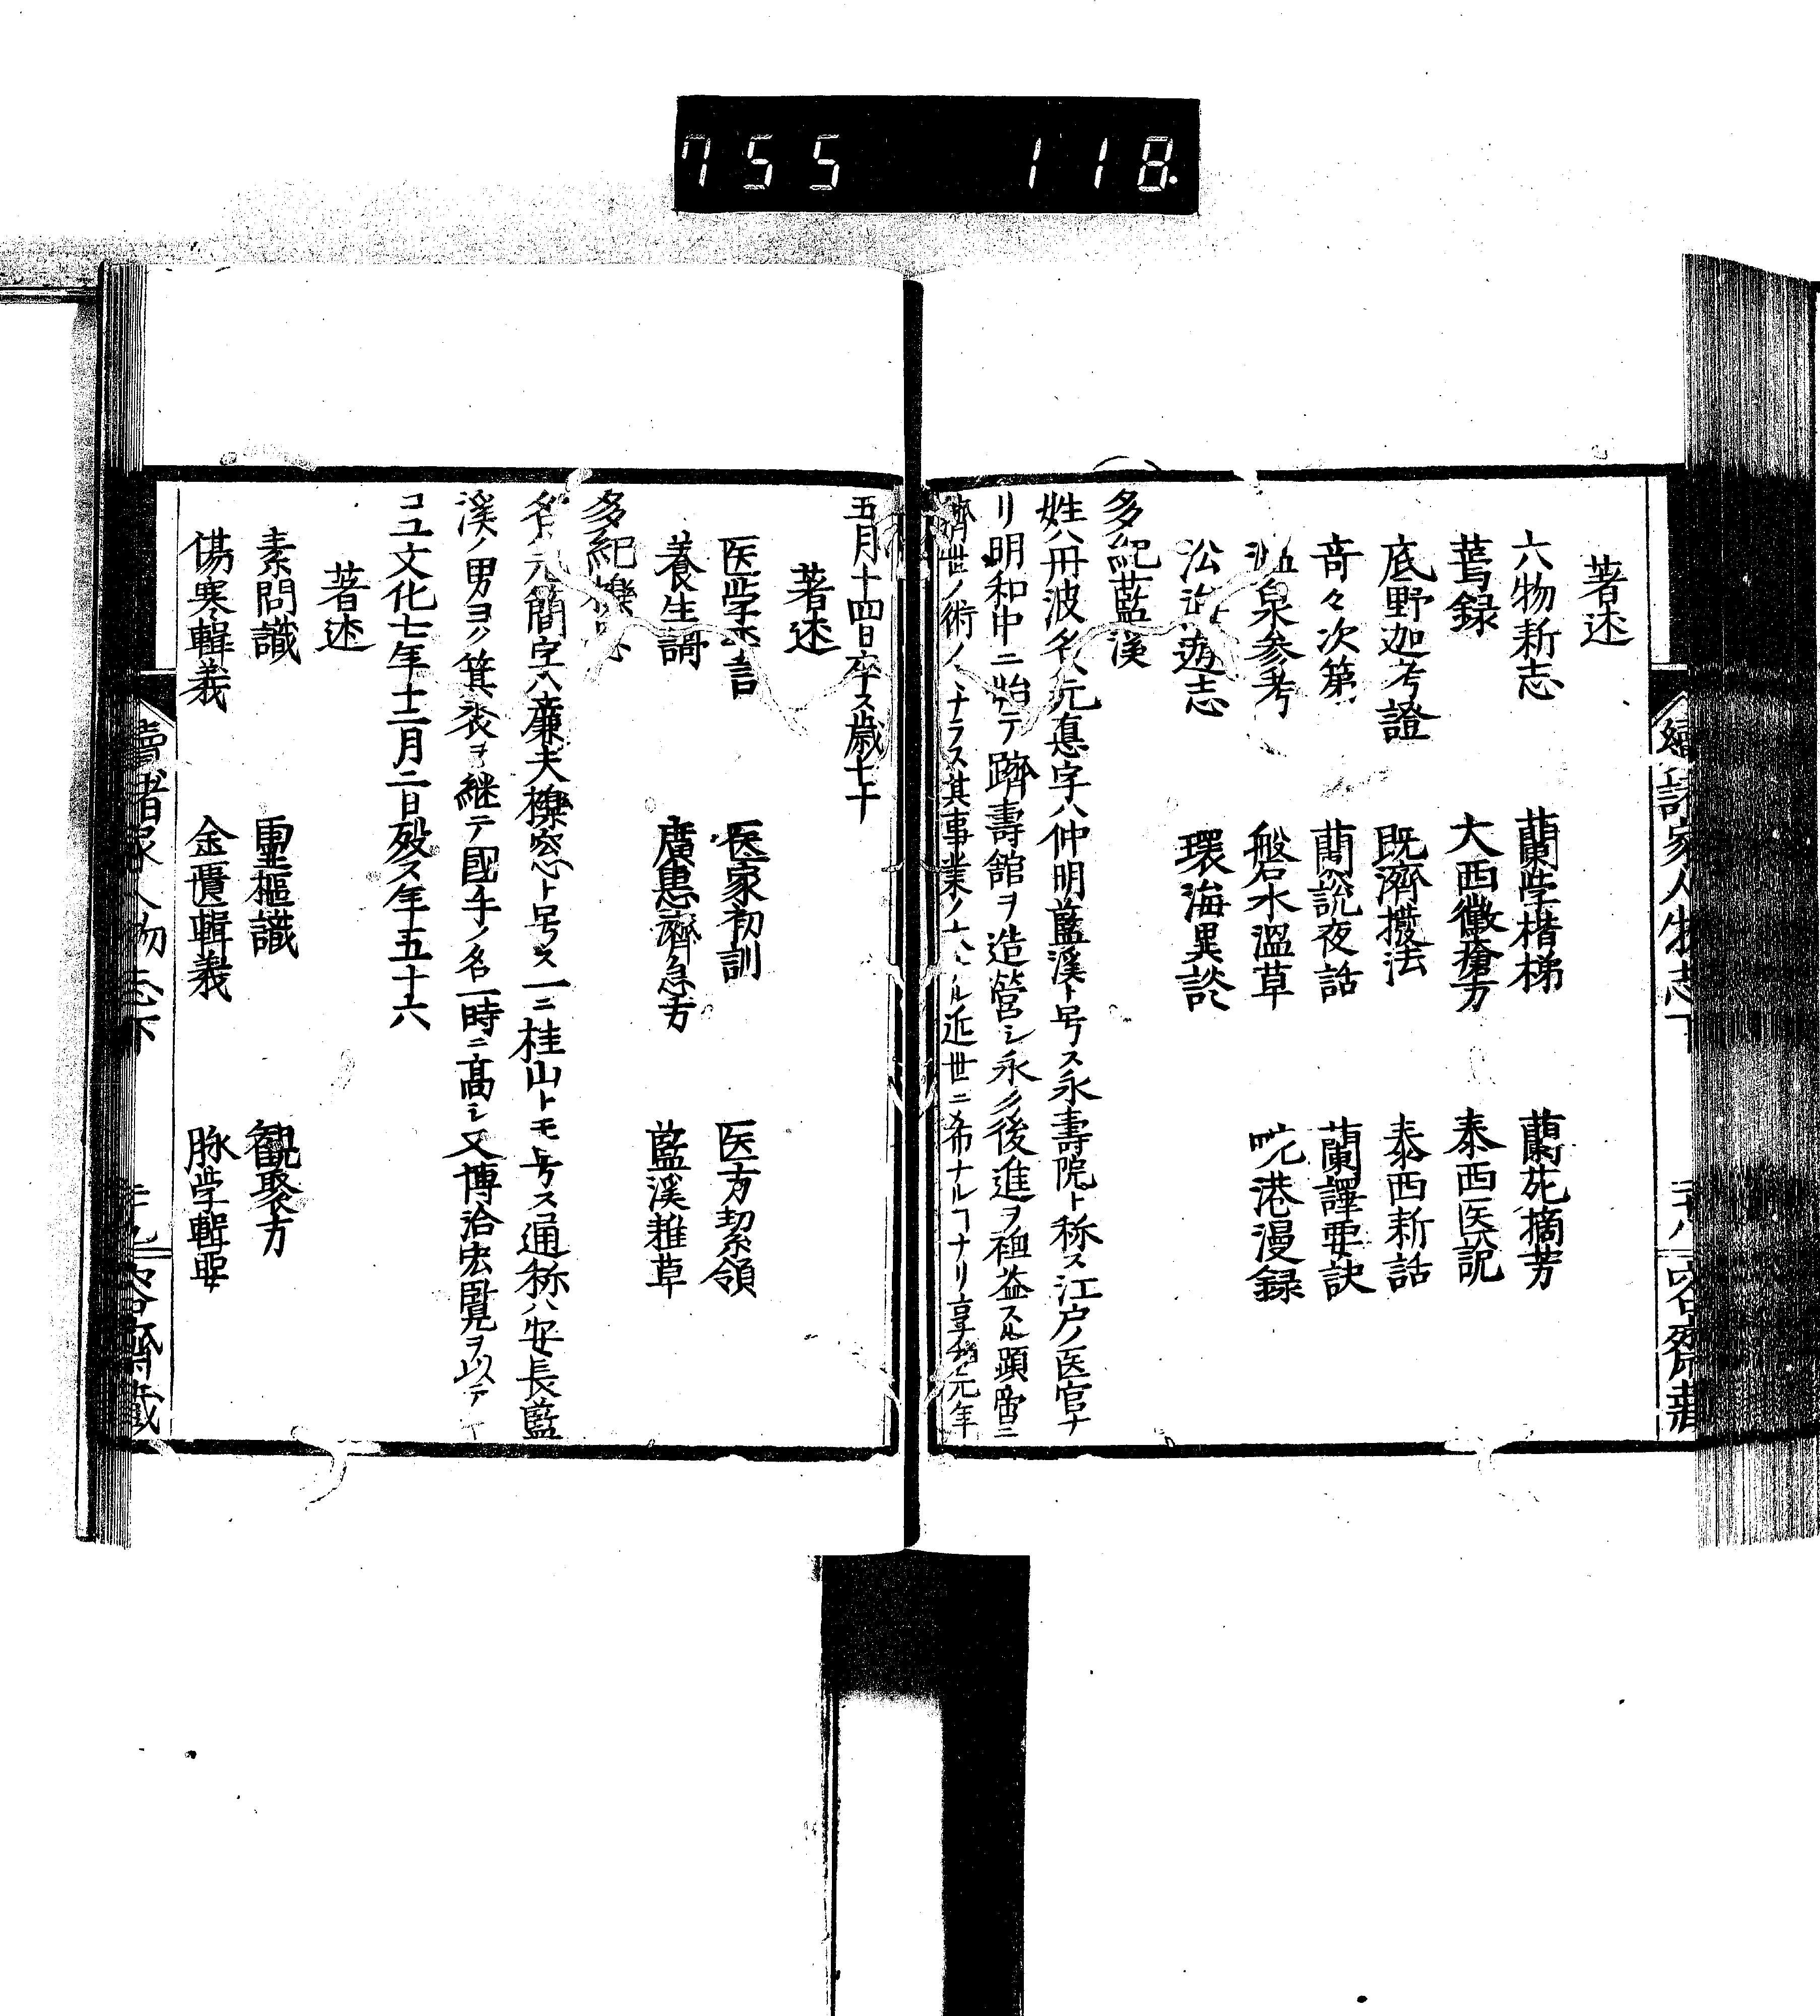 755 118
著述
六物新志 蘭学楷梯 蘭苑摘芳
蔫録 大西黴瘡方 泰西医説
底野迦考證 既濟撥法 泰西新話
奇々次第 蘭説夜話 蘭譯要訣
泉参考 磐水温草 畹港漫録
遊志 環海異談
多紀藍渓
姓ハ丹波名ハ元悳字ハ仲明藍溪ト号ス永壽院ト称ス江戸ノ医官ナ
リ明和中ニ始テ躋壽館ヲ造營シ永ク後進ヲ裨益スル顕
濟世ノ術ノミナラス其事業ノ ル近世ニ希ナルヿナリ享和元年
續諸家人物志下
五月十四日卒ス歳七十
著述
医学 言 医家初訓 医方挈領
養生 廣惠濟急方 藍溪雜草
多紀櫟窓
名ハ元簡字ハ廉夫櫟窓ト号ス一ニ桂山トモ号ス通称ハ安長藍
溪ノ男ヨク箕裘ヲ継テ國手ノ名一時ニ高シ又博洽宏覧ヲ以テ
コユ文化七年十二月二日殁ス年五十六
著述
素問識 靈樞識 観聚方
傷寒輯義 金匱輯義 脉学輯要
續諸家人物志下